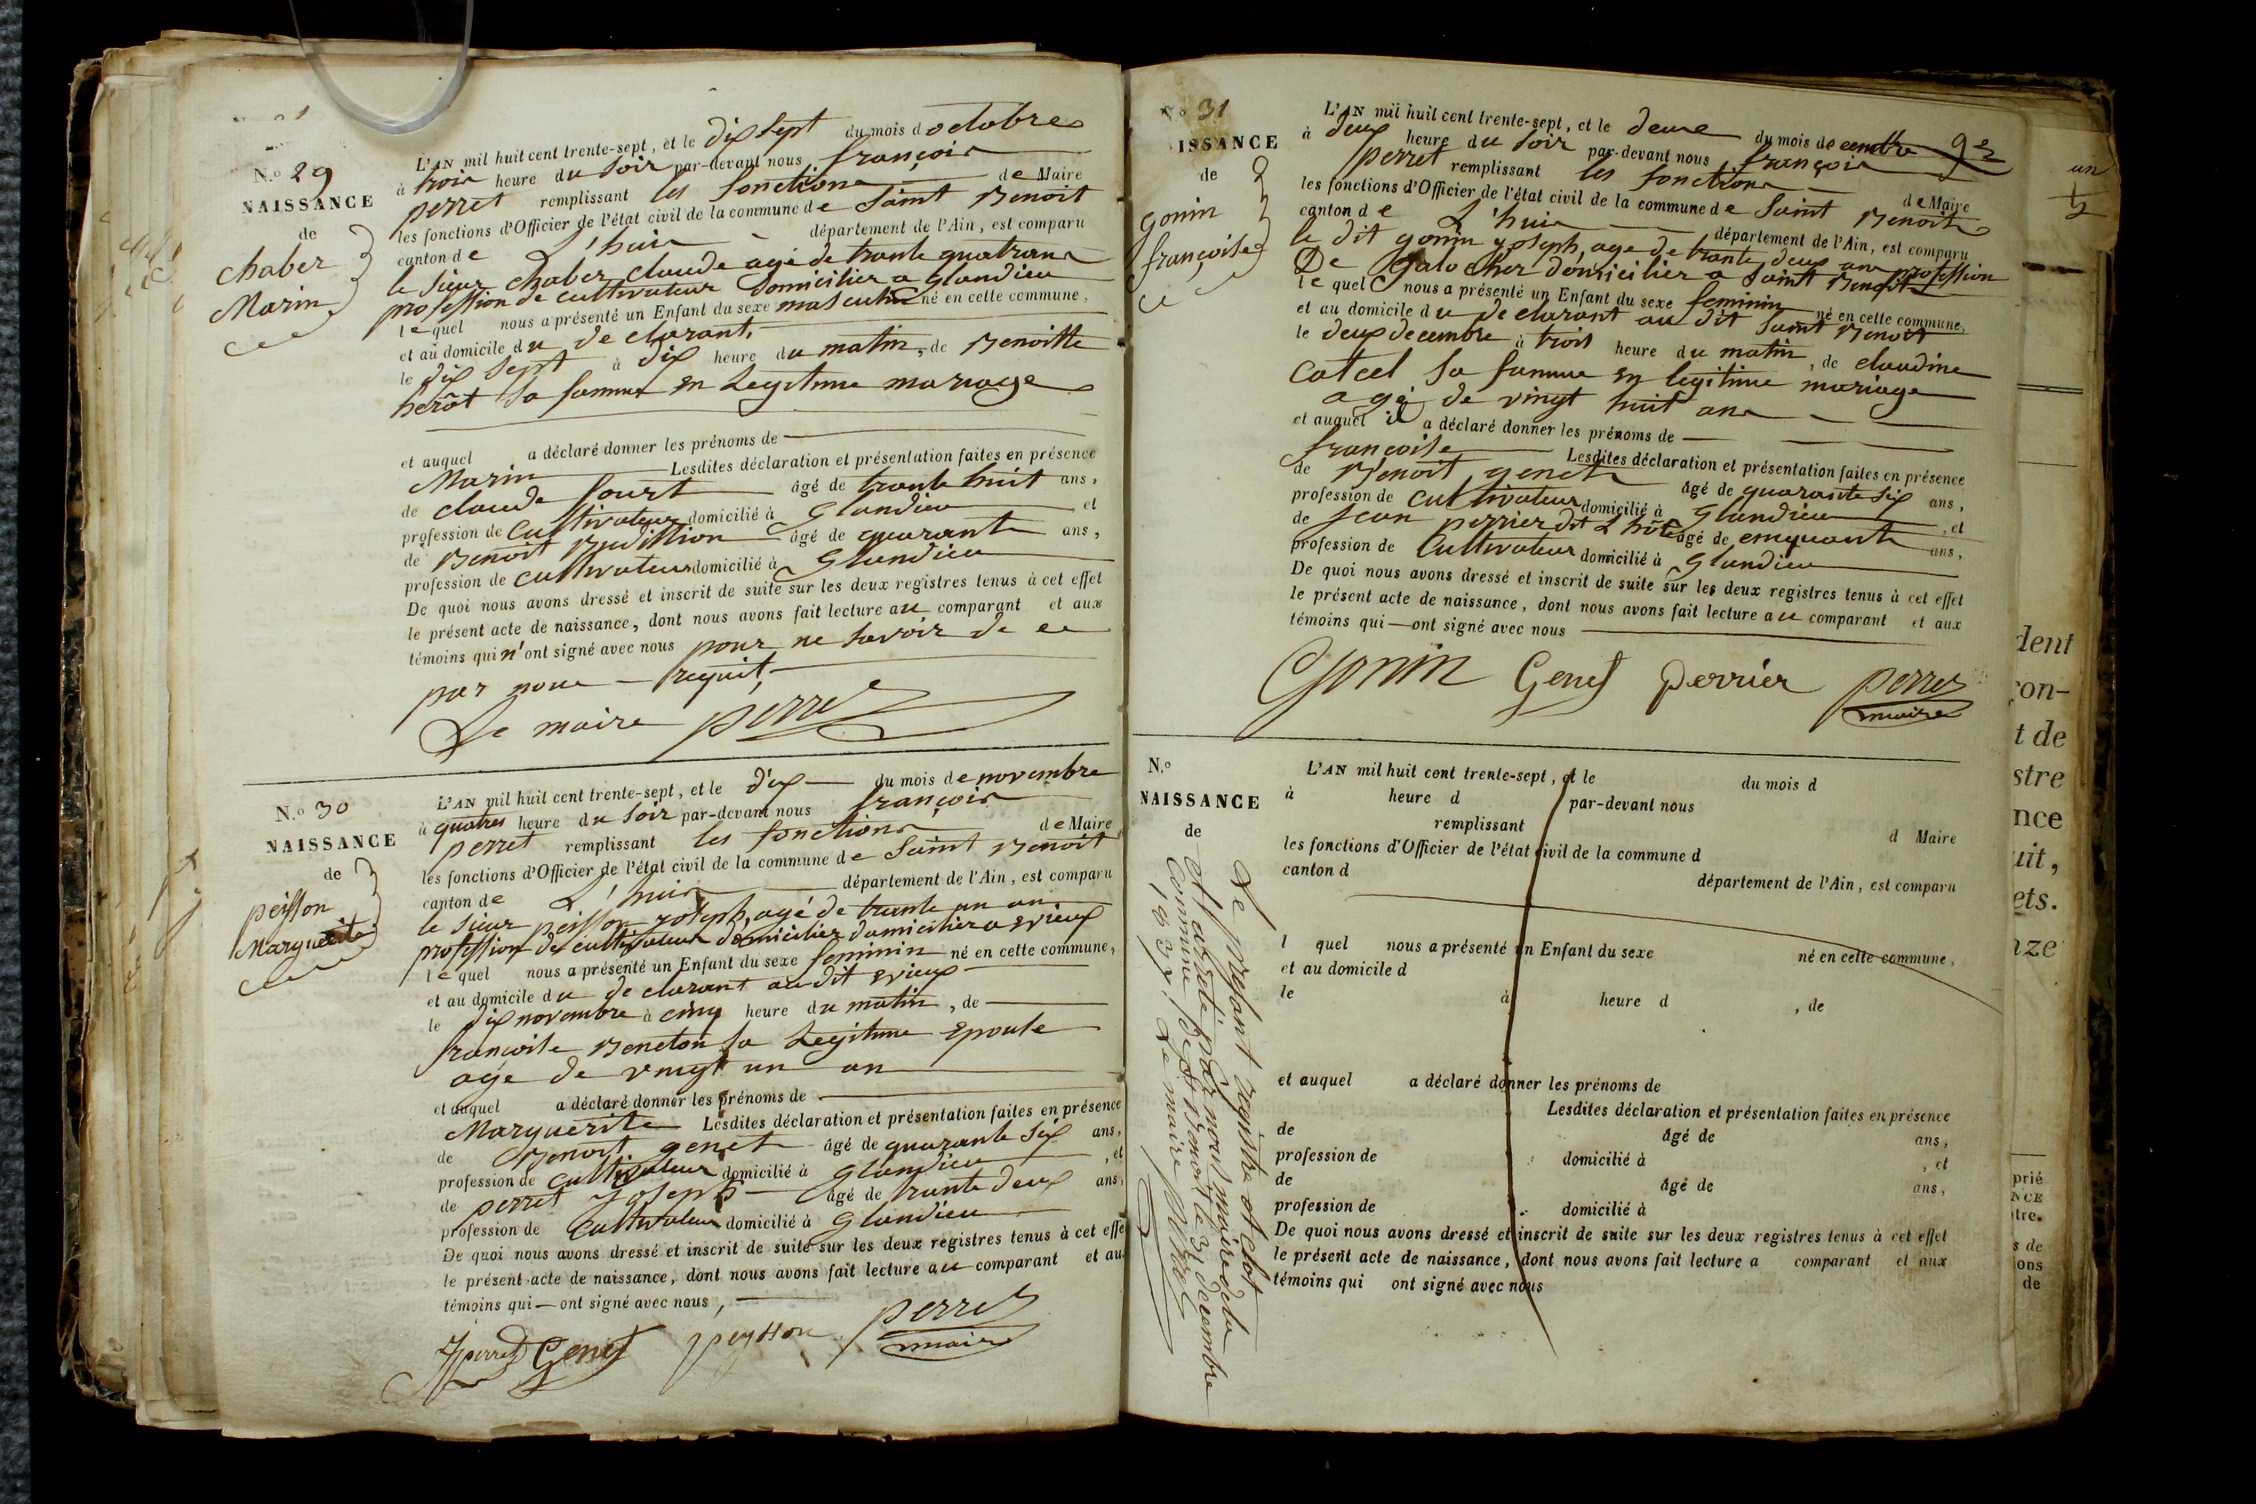 N.o 29
NAISSANCE
de
chaber
Marin
L'AN mil huit cent trente-sept, et le dix sept du mois d octobre
à trois heure du soir par-devant nous françois
perret remplissant les fonctions de Maire
les fonctions d'Officier de l'état civil de la commune de Saint Benoit
canton de L'huis département de l'Ain, est comparu
le sieur chaber claude âgé de trante quatrans
profession de cultivateur domicilier a Glandieu
lequel nous a présenté un Enfant du sexe masculin né en cette commune,
et au domicile du de clarant,
le dix sept à dix heure du matin, de Benoitte
sa famme en Legitime mariage
et auquel a déclaré donner les prénoms de
Marin Lesdites déclaration et présentation faites en présence
de claude âgé de trante huit ans,
profession de Cultivateur domicilié à Glandieu et
de Benoit âgé de quarante ans,
profession de cultivateur domicilié à Glandieu
De quoi nous avons dressé et inscrit de suite sur les deux registres tenus à cet effet
le présent acte de naissance, dont nous avons fait lecture au comparant et aux
témoins qui n'ont signé avec nous pour ne savoir de ce
par nous requit,
Le maire perret
N.o 30
NAISSANCE
de
peisson
Marguerite
L'AN mil huit cent trente-sept, et le dix du mois de novembre
à quatres heure du soir par-devant nous françois
perret remplissant les fonctions de Maire
les fonctions d'Officier de l'état civil de la commune de Saint Benoit
canton de L'huis département de l'Ain, est comparu
le sieur peisson joseph, agé de trante un an
profession de cultivateur domicilier domicilier a evieux
lequel nous a présenté un Enfant du sexe feminin né en cette commune,
et au domicile du de clarant au dit evieux
le dix novembre à cinq heure du matin, de
francoise Beneton sa Legitime epouse
agé de vingt un an
et auquel a déclaré donner les prénoms de
Marguerite Lesdites déclaration et présentation faites en présence
de Benoit genet âgé de quarante six ans,
profession de Cultivateur domicilié à Glandieu, et
de perret Joseph âgé de trante deux ans,
profession de Cultivateur domicilié à Glandieu
De quoi nous avons dressé et inscrit de suite sur les deux registres tenus à cet effe
le présent acte de naissance, dont nous avons fait lecture au comparant et au
témoins qui — ont signé avec nous,
Jperret Genet peysson perret
maire
No 31
ISSANCE
de
gonin
françoise
L'AN mil huit cent trente-sept, et le deuxe du mois de cembre
à deux heure du soir par-devant nous françois
perret remplissant les fonctions de Maire
les fonctions d'Officier de l'état civil de la commune de Saint Benoit
canton de L'huis département de l'Ain, est comparu
le dit gonin joseph, age de trante deux ans profession
De Galocher domicilier a Saint Benoit
lequel nous a présenté un Enfant du sexe feminin né en cette commune,
et au domicile du de clarant au dit Saint Benoit
le deux decembre à trois heure du matin, de claudine
catcel sa famme en legitime mariage
agé de vingt huit ans
et auquel il a déclaré donner les prénoms de
françoise Lesdites déclaration et présentation faites en présence
de Benoit genet âgé de quarante six ans,
profession de Cultivateur domicilié à Glandieu, et
de Jean perrier dit L'hôte âgé de cinquante ans,
profession de Cultivateur domicilié à Glandieu
De quoi nous avons dressé et inscrit de suite sur les deux registres tenus à cet effet
le présent acte de naissance, dont nous avons fait lecture au comparant et aux
témoins qui — ont signé avec nous
Gonin Genet perrier perret
maire
N.o
NAISSANCE
de
L'AN mil huit cent trente-sept, et le du mois d
à heure d par-devant nous
remplissant d Maire
les fonctions d'Officier de l'état civil de la commune d
canton d département de l'Ain, est comparu
l quel nous a présenté un Enfant du sexe né en cette commune,
et au domicile d
le à heure d , de
et auquel a déclaré donner les prénoms de
Lesdites déclaration et présentation faites en présence
de âgé de ans,
profession de domicilié à , et
de âgé de ans,
profession de domicilié à
De quoi nous avons dressé et inscrit de suite sur les deux registres tenus à cet effet
le présent acte de naissance, dont nous avons fait lecture a comparant et aux
témoins qui ont signé avec nous
Le présant registre et clot
et arreté par nous maire de la
Commune de St Benoit le 31 decembre
1837. Le maire perret
un
dent
con-
t de
stre
nce
uit,
ets.
nze
prié
NCE
tre.
s de
ons
de